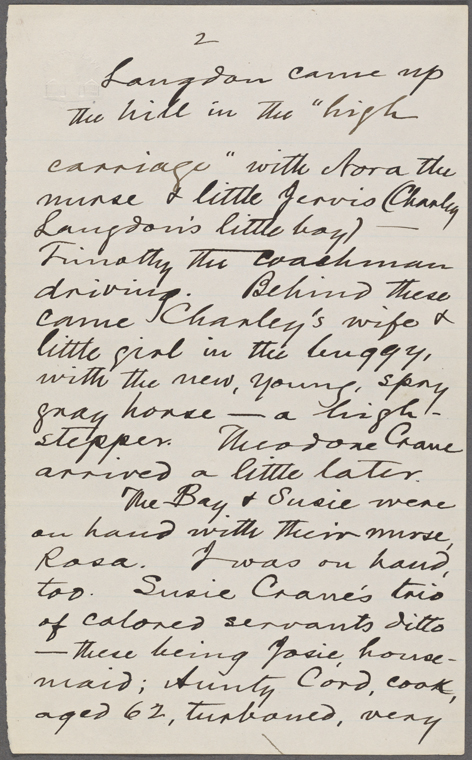 2
Langdon came up
the hill in the "high
carriage" with Nora the
nurse & little Jervis (Charley
Langdon's little boy) —
Timothy the coachman
driving. Behind these
came Charley's wife &
little girl in the buggy,
with the new, young, spry
gray horse — a high-
stepper. Theodore Crane
arrived a little later.
The Bay & Susie were
on hand with their nurse,
Rosa. I was on hand,
too. Susie Crane's trio
of colored servants ditto
— these being Josie, house-
maid; Aunty Cord, cook,
aged 62, turbaned, very